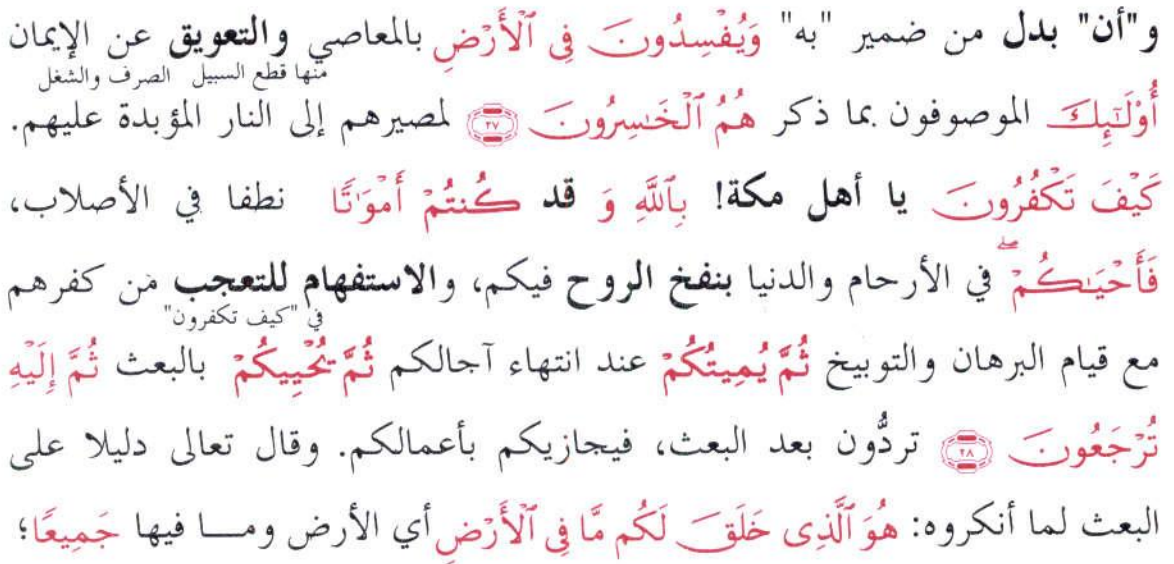 و"أن" بدل من ضمير "به" وَيُفْسِدُونَ فِي ٱلْأَرْضِ بالمعاصي والتعويق عن الإيمان
منها قطع السبيل الصرف والشغل
أُوْلَـٰٓئِكَ الموصوفون بما ذكر هُمُ ٱلْخَـٰسِرُونَ ۝٢٧ لمصيرهم إلى النار المؤبدة عليهم.
كَيْفَ تَكْفُرُونَ يا أهل مكة! بِٱللَّهِ وَ قد كُنتُمْ أَمْوَٰتًا نطفا في الأصلاب،
فَأَحْيَـٰكُمْ ۖ في الأرحام والدنيا بنفخ الروح فيكم، والاستفهام للتعجب من كفرهم
في "كيف تكفرون"
مع قيام البرهان والتوبيخ ثُمَّ يُمِيتُكُمْ عند انتهاء آجالكم ثُمَّ يُحْيِيكُمْ بالبعث ثُمَّ إِلَيْهِ
تُرْجَعُونَ ۝٢٨ تردُّون بعد البعث، فيجازيكم بأعمالكم. وقال تعالى دليلا على
البعث لما أنكروه: هُوَ ٱلَّذِى خَلَقَ لَكُم مَّا فِى ٱلْأَرْضِ أي الأرض ومـــا فيها جَمِيعًا؛